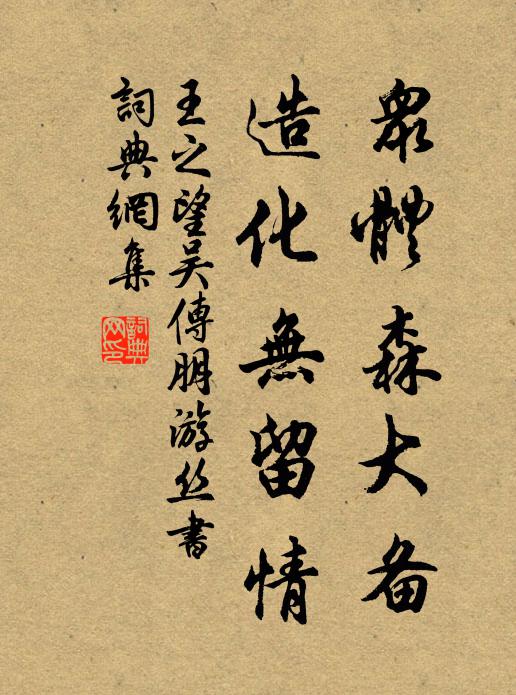 眾體森大备
造化無留情
王之望吴傅朋游丝書
詞典網集
詞典网印